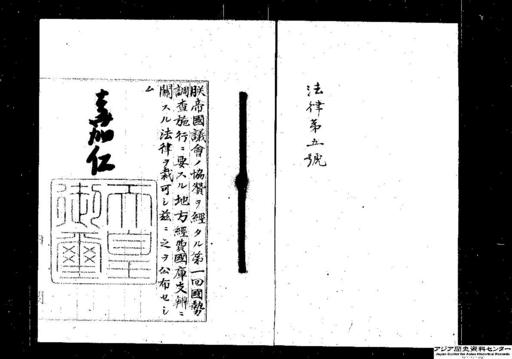 法律第五號
朕帝國議會ノ協贊ヲ經タル第一回國勢
調查施行ニ要スル地方經費國庫支辨ニ
關スル法律ヲ裁可シ茲ニ之ヲ公布セシ
ム
嘉仁
天皇御璽
アジア歴史資料センター
Japan Center for Asian Historical Records